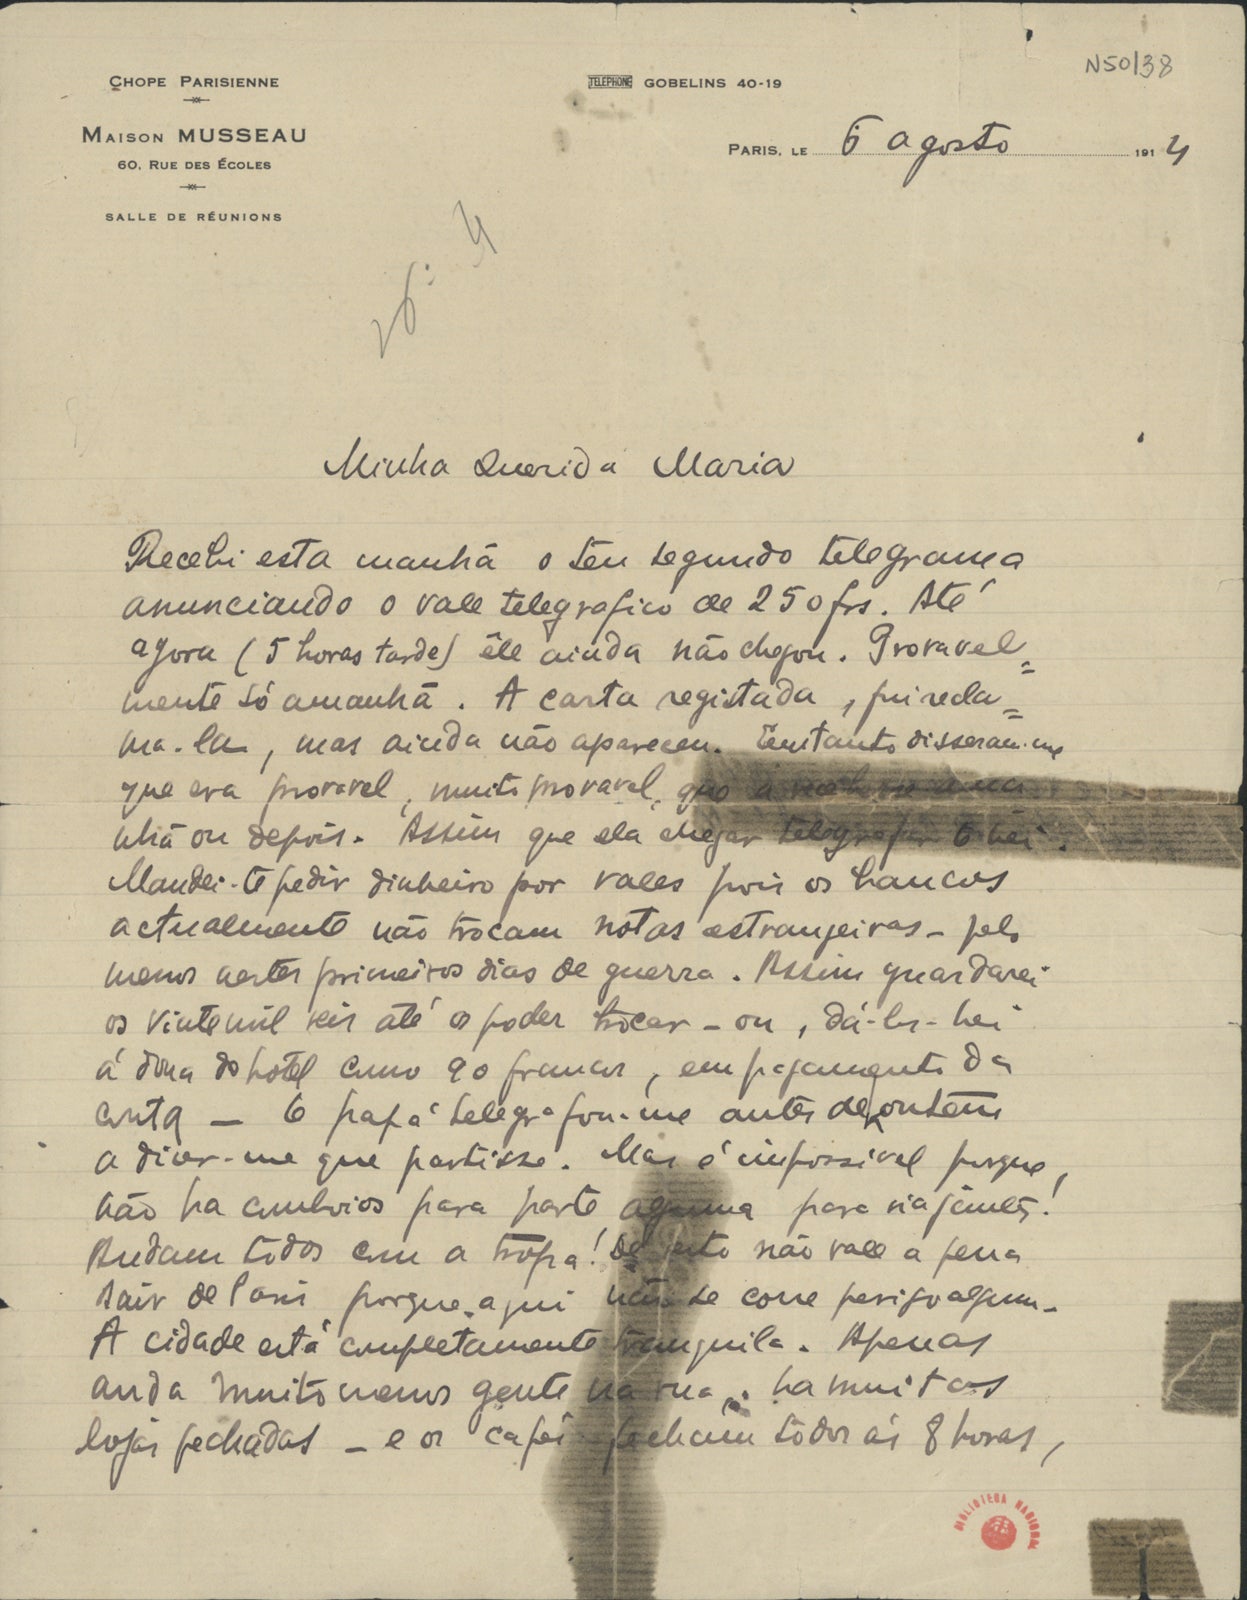 N50/38
CHOPE PARISIENNE
MAISON MUSSEAU
60, RUE DES ÉCOLES
SALLE DE RÉUNIONS
TELEPHONE GOBELINS 40-19
PARIS, LE 6 agosto 1914
Minha Querida Maria
Recebi esta manhã o teu segundo telegrama
anunciando o vale telegrafico de 250 frs. Até
agora (5 horas tarde) êle ainda não chegou. Provavel=
mente só amanhã. A carta registada, fui recla=
ma-la, mas ainda não apareceu. Emtanto disseram-me
que era provavel, muito provavel, que a
nhã ou depois. Assim que ela chegar telegrafar-te-hei.
Mandei-te pedir dinheiro por vales pois os bancos
actualmente não trocam notas estrangeiras - pelo
menos nestes primeiros dias de guerra. Assim guardarei
os vinte mil reis até os poder trocar - ou, dá-los-hei
á dona do hotel como 90 francos, em pagamento da
conta — O papá telegrafou-me antes de ontem
a dizer-me que partisse. Mas é impossivel porque,
não ha comboios para parte alguma para viajantes!
Andam todos com a tropa! De resto não vale a pena
sair de Paris porque aqui não se corre perigo algum.
A cidade está completamente tranquila. Apenas
anda muito menos gente na rua, ha muitas
lojas fechadas - e os cafés fecham todos ás 8 horas,
BIBLIOTECA NACIONAL